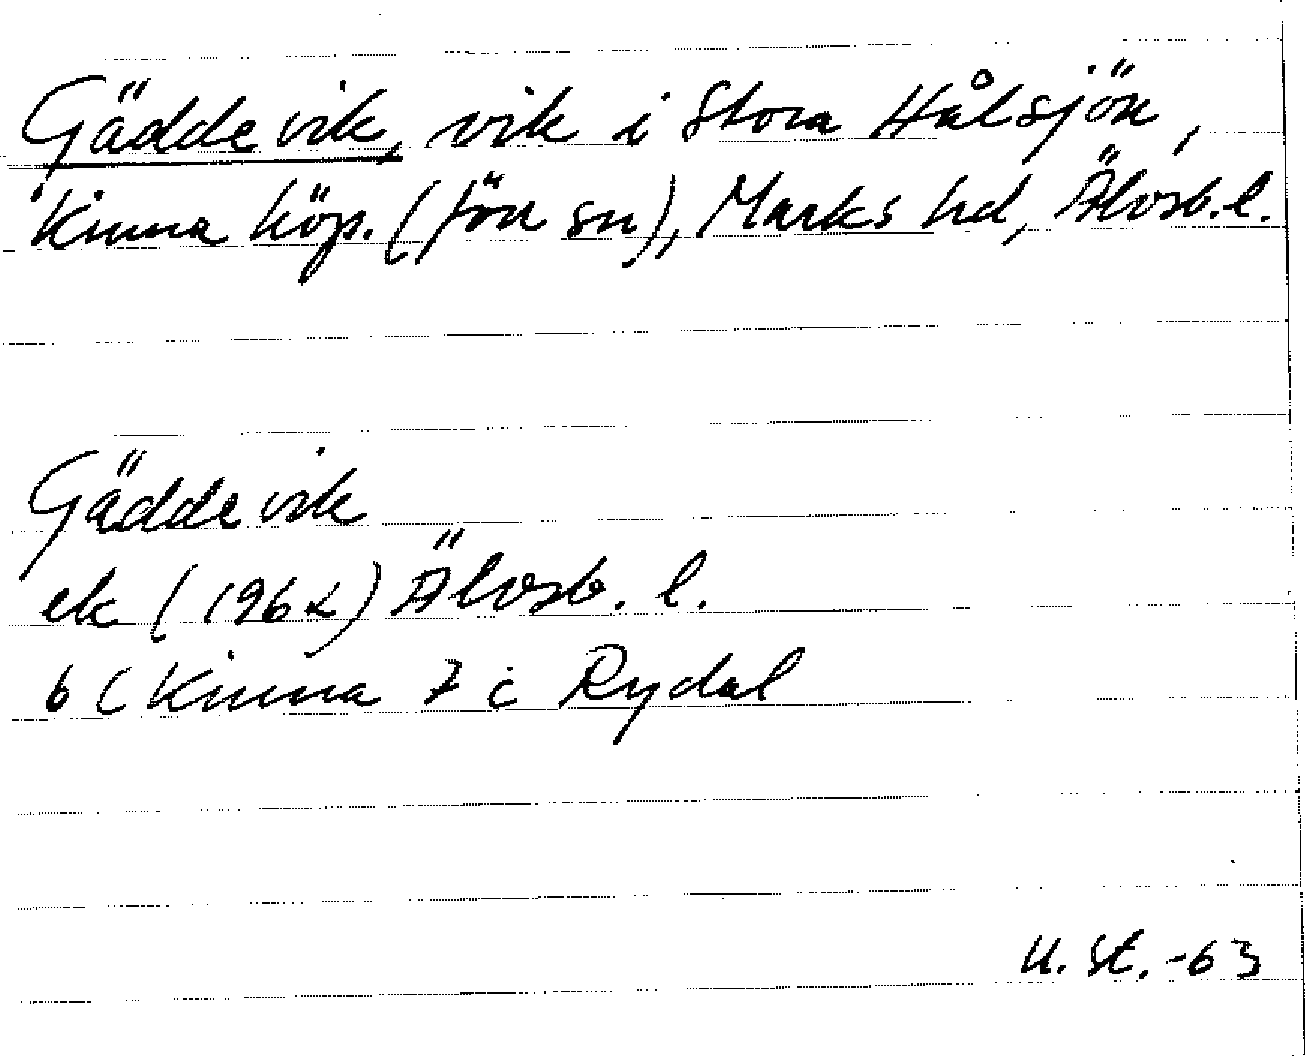 Gäddevik, vik i Stora Hålsjön,
Kinna köp. (förr sn), Marks hd, Älvsb.l.
Gäddevik
ek (1962) Älvsb. l.
6 c Kinna 7 c Rydal
U. St. -63